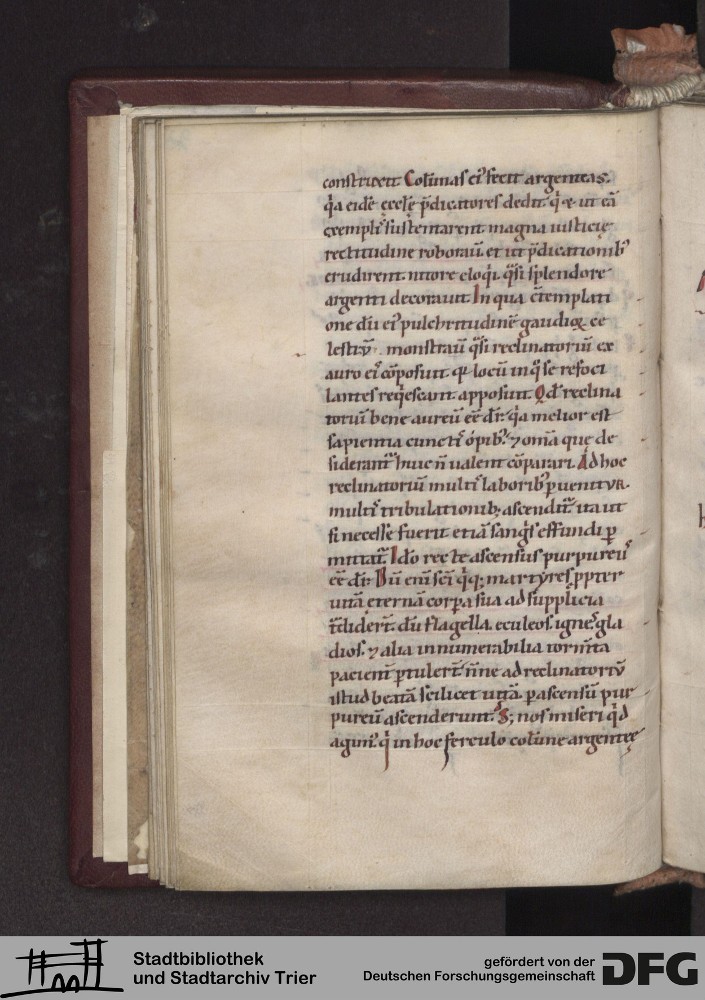 construxit. Colūnnas ei' fecit argenteas.
q̇a eidē eccl̄ę p̄dicatores dedit q̇ ⁊ ut eā
exempli' sustentarent magna iusticię
rectitudine roboraū. et ut p̄dicationib'
erudirent. nitore eloq̇i. q̄si splendore
argenti decorauit. In qua c̄templati
one dū ei' pulchritudinē gaudioꝝ ce
lestiū monstraū q̄si reclinatoriū ex
auro ei' cōposuit. locū in q̊ se refoci
lantes req̇escant apposuit. Qd̄ reclina
toriū bene aureū eē dr̄. q̇a melior est
sapientia cunctis opib'. ⁊ om̄a que de
siderant' huic n̄ ualent cōparari. Ad hoc
reclinatoriū multis laborib' ꝑuenitur.
multis tribulationib; ascendit'. ita ut
si necesse fuerit etiā sangs effundi ꝑ
mittat'. Ido recte ascensus purpureus
eē dr̄. Dū eni sc̄i q̇q; martyres ꝓpter
uitā eternā corꝑa sua ad supplicia
t̄diderunt. dū flagella. eculeos. ignes. gla
dios. ⁊ alia innumerabilia torm̄ta
pacient' ꝑtulert. n̄ne ad reclinatoriū
istud beatā scilicet uitā. ꝑ ascensū pur
pureū ascenderunt. S; nos miseri q̇d
agim'. q̇ in hoc ferculo colūne argenteę
Stadtbibliothek
und Stadtarchiv Trier
gefördert von der
Deutschen Forschungsgemeinschaft
DFG